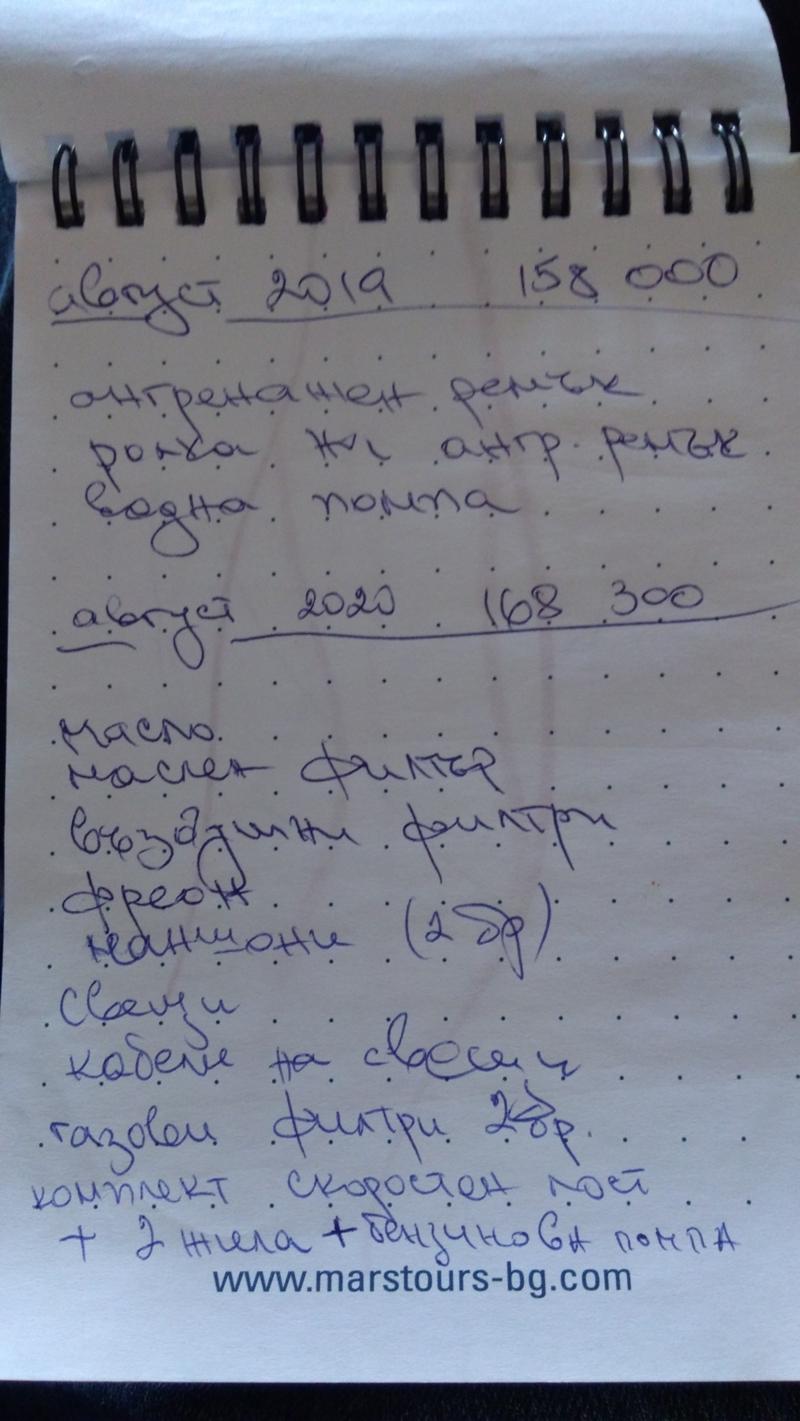 август 2019 158 000
ангренажен ремък
ролка на ангр. ремък
водна помпа
август 2020 168 300
масло
маслен филтър
въздушни филтри
фреон
маншони (2 бр)
свещи
кабели на свещи
газови филтри 2бр.
комплект скоростен лост
+ 2 жила + бензинова помпа
www.marstours-bg.com